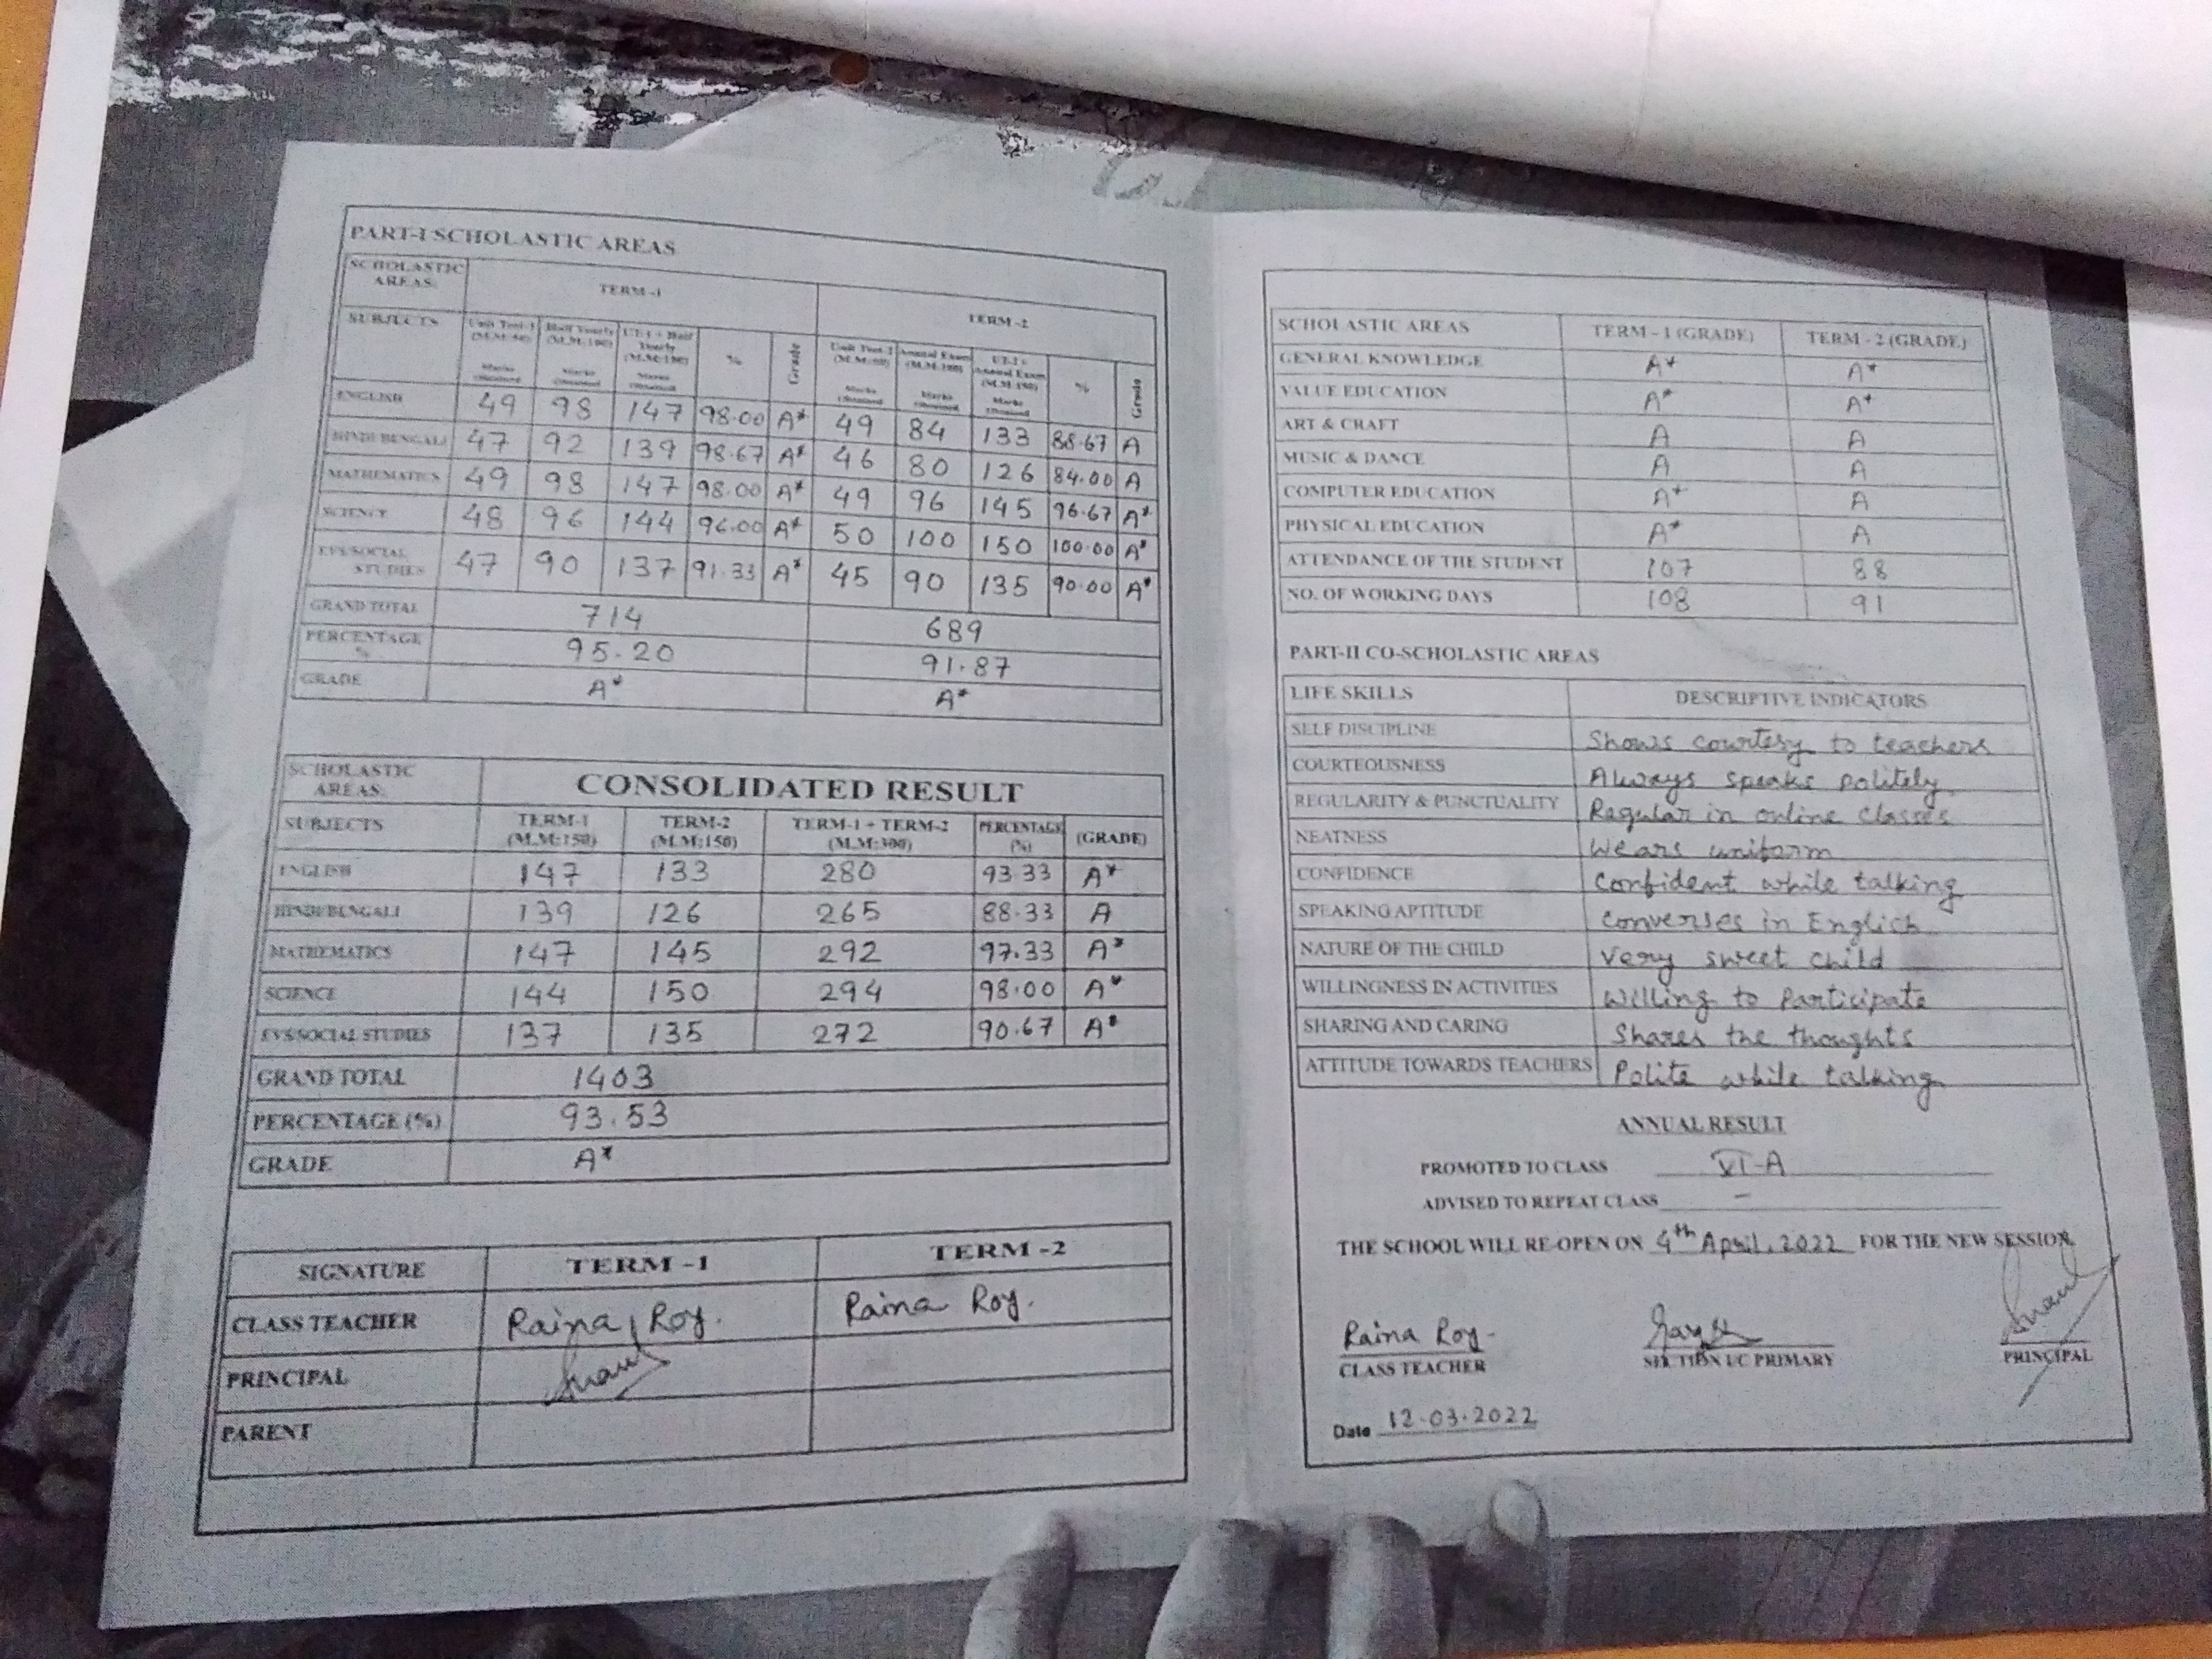 PART-I SCHOLASTIC AREAS
SCHOLASTIC AREAS TERM-1 TERM-2
SUBJECTS Unit Test-1 (M.M:50) Marks Obtained Half Yearly (M.M:100) Marks Obtained UT-1 + Half Yearly (M.M:150) Marks Obtained % Grade Unit Test-2 (M.M:50) Marks Obtained Annual Exam (M.M:100) Marks Obtained UT-2 + Annual Exam (M.M:150) Marks Obtained % Grade
ENGLISH 49 98 147 98.00 A* 49 84 133 88.67 A
HINDI/BENGALI 47 92 139 98.67 A* 46 80 126 84.00 A
MATHEMATICS 49 98 147 98.00 A* 49 96 145 96.67 A*
SCIENCE 48 96 144 96.00 A* 50 100 150 100.00 A*
EVS/SOCIAL STUDIES 47 90 137 91.33 A* 45 90 135 90.00 A*
GRAND TOTAL 714 689
PERCENTAGE % 95.20 91.87
GRADE A* A*
SCHOLASTIC AREAS CONSOLIDATED RESULT
SUBJECTS TERM-1 (M.M:150) TERM-2 (M.M:150) TERM-1 + TERM-2 (M.M:300) PERCENTAGE (%) (GRADE)
ENGLISH 147 133 280 93.33 A*
HINDI/BENGALI 139 126 265 88.33 A
MATHEMATICS 147 145 292 97.33 A*
SCIENCE 144 150 294 98.00 A*
EVS/SOCIAL STUDIES 137 135 272 90.67 A*
GRAND TOTAL 1403
PERCENTAGE (%) 93.53
GRADE A*
SIGNATURE TERM -1 TERM -2
CLASS TEACHER Raina Roy. Raina Roy.
PRINCIPAL
PARENT
SCHOLASTIC AREAS TERM - 1 (GRADE) TERM - 2 (GRADE)
GENERAL KNOWLEDGE A* A*
VALUE EDUCATION A* A*
ART & CRAFT A A
MUSIC & DANCE A A
COMPUTER EDUCATION A* A
PHYSICAL EDUCATION A* A
ATTENDANCE OF THE STUDENT 107 88
NO. OF WORKING DAYS 108 91
PART-II CO-SCHOLASTIC AREAS
LIFE SKILLS DESCRIPTIVE INDICATORS
SELF DISCIPLINE Shows courtesy to teachers
COURTEOUSNESS Always speaks politely
REGULARITY & PUNCTUALITY Regular in online classes
NEATNESS Wears uniform
CONFIDENCE Confident while talking
SPEAKING APTITUDE Converses in English
NATURE OF THE CHILD Very sweet child
WILLINGNESS IN ACTIVITIES Willing to participate
SHARING AND CARING Shares the thoughts
ATTITUDE TOWARDS TEACHERS Polite while talking
ANNUAL RESULT
PROMOTED TO CLASS VI-A
ADVISED TO REPEAT CLASS -
THE SCHOOL WILL RE-OPEN ON 4th April, 2022 FOR THE NEW SESSION.
Raina Roy-
CLASS TEACHER SECTION I/C PRIMARY PRINCIPAL
Date 12.03.2022